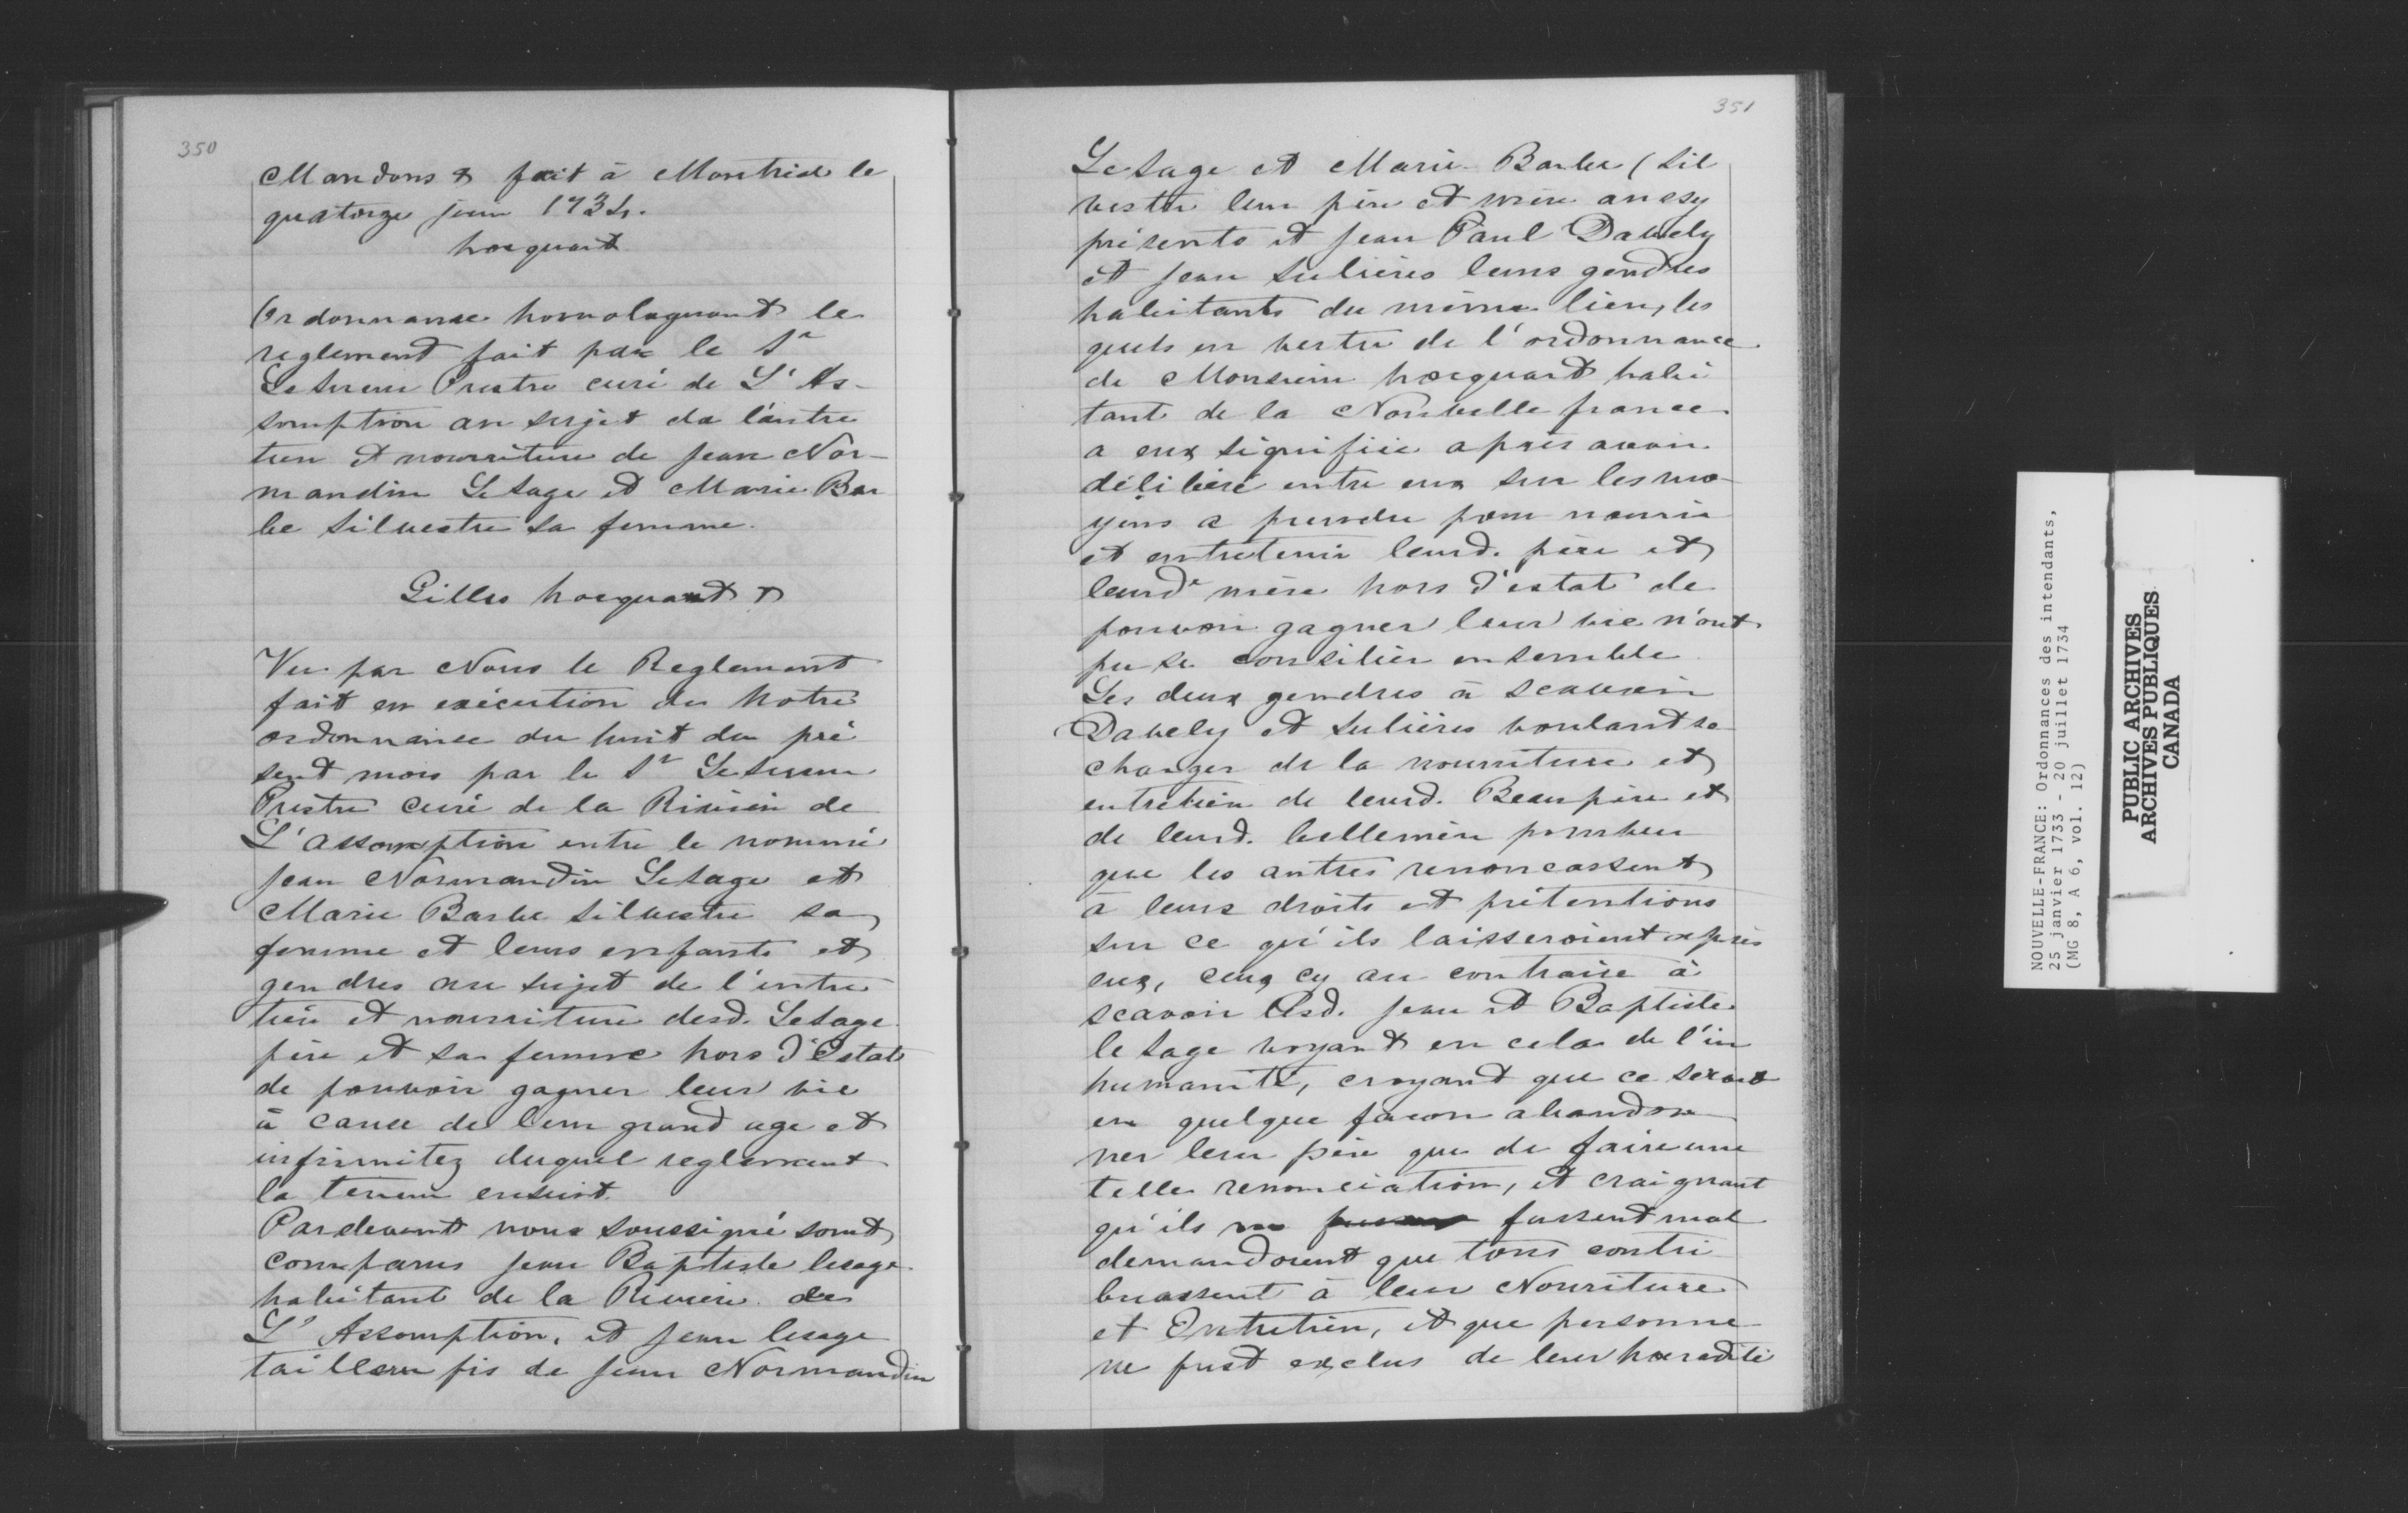 350
Mandons & fait à Montréal le
quatorze juin 1734.
hocquart
Ordonnance homologuant le
reglement fait par le Sr
Le Sueur Prestre curé de L'As-
somption au sujet de l'entre
tien et nourriture de Jean Nor-
mandin Le Sage et Marie Bar
be Silvestre sa femme.
Gilles hocquart &
Vu par Nous le Reglement
fait en exécution de Notre
ordonnance du huit du pré
sent mois par le Sr Le Sueur
Prestre curé de la Rivière de
L'assomption entre le nommé
Jean Normandin Le Sage et
Marie Barbe Silvestre sa
femme et leurs enfants et
gendres au sujet de l'entre
tien et nourriture desd. Le Sage
père et sa femme hors d'Estat
de pouvoir gagner leur vie
à cause de leur grand age et
infirmitez duquel reglement
la teneur ensuit.
Pardevant nous soussigné sont
comparus Jean Baptiste lesage
habitant de la Riviere de
L'Assomption, et Jean lesage
tailleur fis de Jean Normandin
351
Le Sage et Marie Barbe (Sil
vestre leur père et mère aussy
présents et Jean Paul Davely
et Jean Sulières leurs gendres
habitants du même lieu, les
quels en vertu de l'ordonnance
de Monsieur hocquart habi
tant de la Nouvelle france
a eux signifiée après avoir
délibéré entre eux sur les mo-
yens a prendre pour nourir
et entretenir leurd. père et
leurde mère hors d'estat de
pouvoir gagner leur vie n'ont
pu se consilier ensemble
Les deux gendres à scavoir
Davely et Sulières voulant se
charger de la nourriture et
entretien de leurd. Beaupère et
de leurd. bellemère pourveu
que les autres renoncassent
à leurs droits et prétentions
sur ce qu'ils laisseroient après
eux, ceux cy au contraire à
scavoir lesd. Jean et Baptiste
le Sage voyant en cela de l'in
humanité, croyant que ce seroit
en quelque facon abandon
ner leur père que de faire une
telle renonciation, et craignant
qu'ils ne fussent mal
demandoient que tous contri
buassent à leur Nouriture
et Entretien, et que personne
ne fust exclus de leur haeredité
NOUVELLE-FRANCE: Ordonnances des intendants,
25 janvier 1733 - 20 juillet 1734
(MG 8, A 6, vol. 12)
PUBLIC ARCHIVES
ARCHIVES PUBLIQUES
CANADA